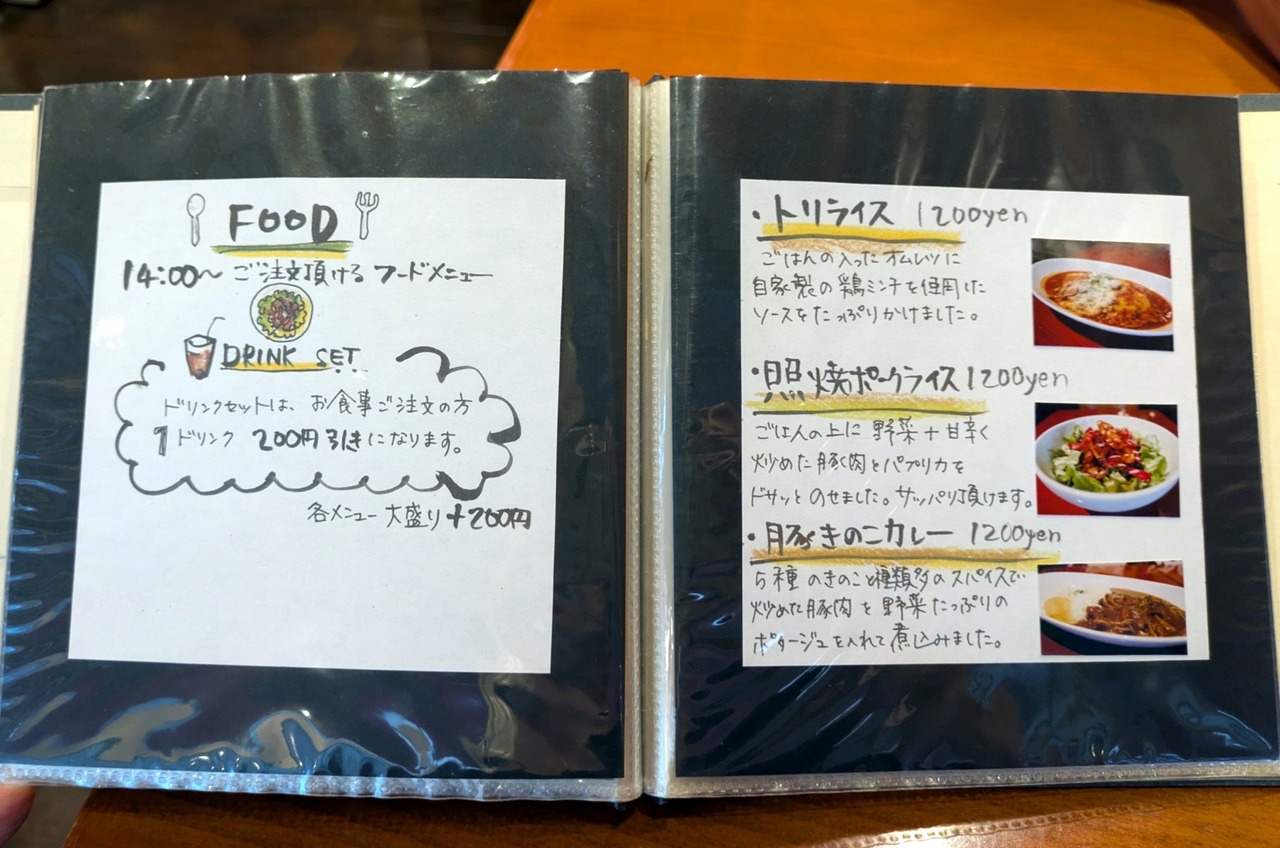 FOOD
14:00〜 ご注文頂ける フードメニュー
DRINK SET
ドリンクセットは、お食事ご注文の方
1ドリンク 200円引きになります。
各メニュー 大盛り +200円
・トリライス 1200yen
ごはんの入ったオムレツに
自家製の鶏ミンチを使用した
ソースをたっぷりかけました。
・照焼ポークライス 1200yen
ごはんの上に 野菜+甘辛く
炒めた豚肉とパプリカを
ドサッとのせました。サッパリ頂けます。
・豚きのこカレー 1200yen
5種のきのこと種類多のスパイスで
炒めた豚肉を野菜たっぷりの
ポタージュを入れて煮込みました。